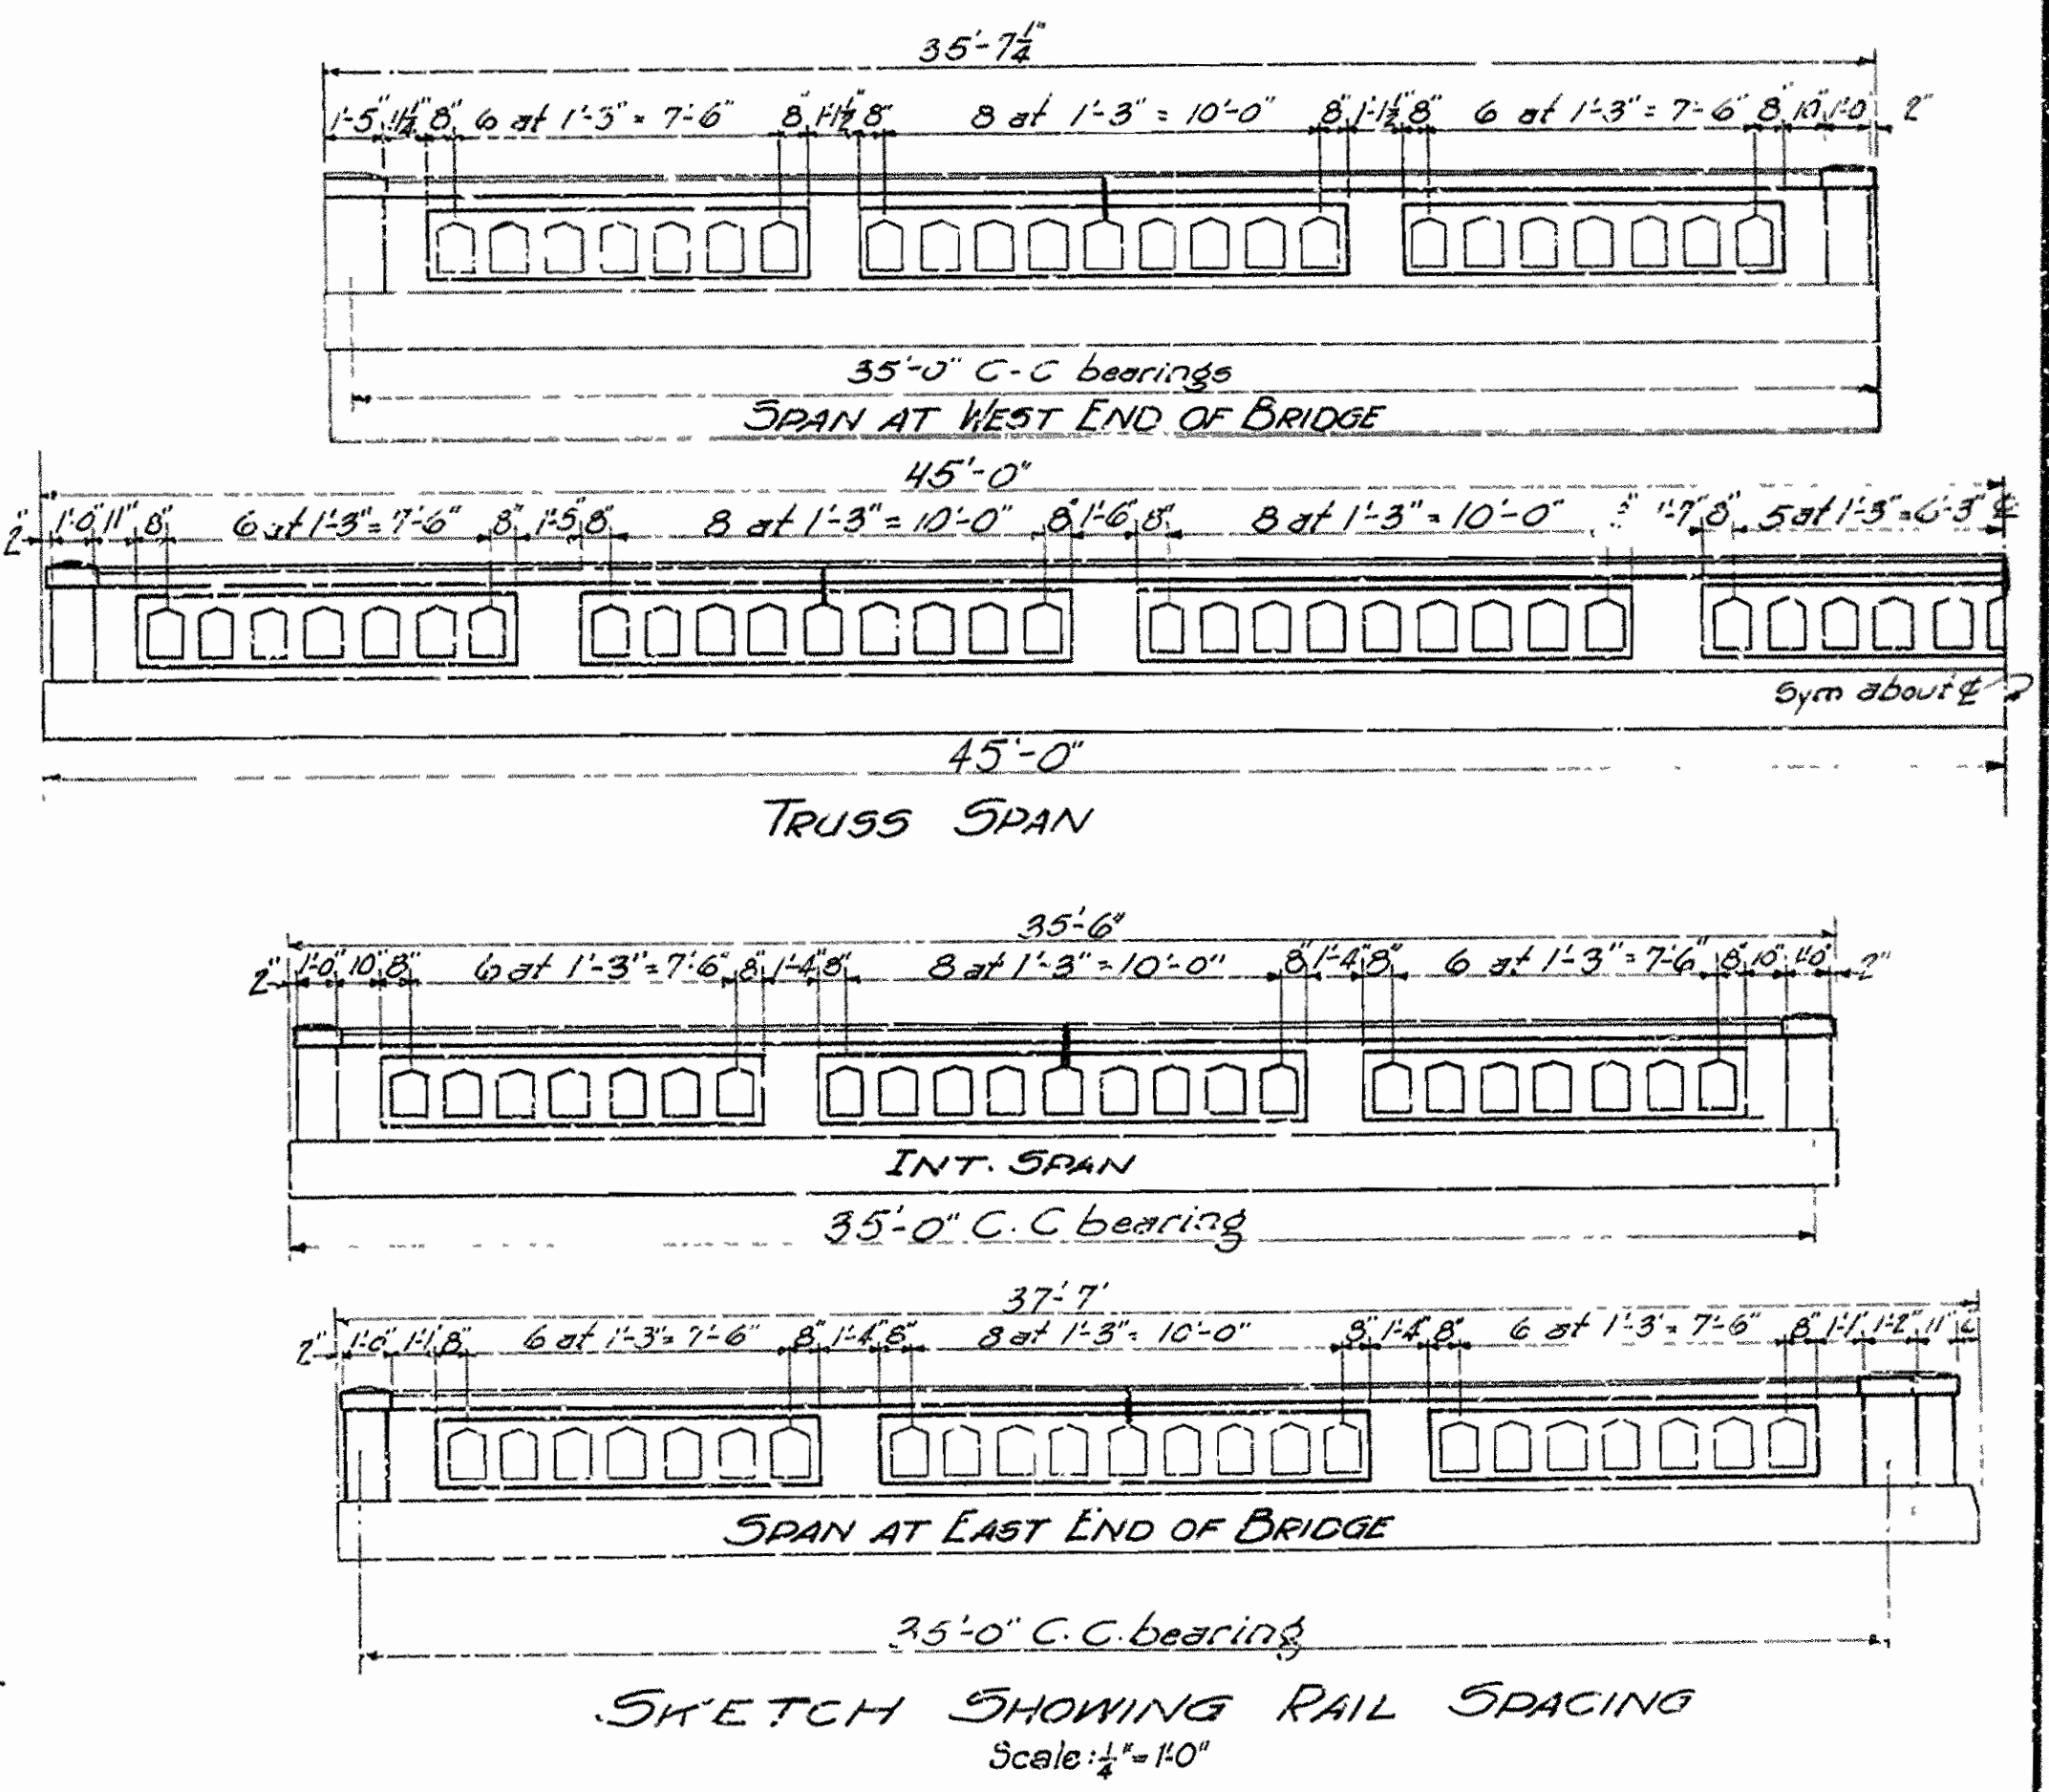 35'-7 1/4"
1'-5" 11 1/2" 8" 6 at 1'-3" = 7'-6" 8" 1'-1 1/2" 8" 8 at 1'-3" = 10'-0" 8" 1'-1 1/2" 8" 6 at 1'-3" = 7'-6" 8" 10" 1'-0 2"
35'-0" C-C bearings
SPAN AT WEST END OF BRIDGE
45'-0"
2" 1'-0" 11" 8" 6 at 1'-3" = 7'-6" 8" 1'-5" 8" 8 at 1'-3" = 10'-0" 8" 1'-6" 8" 8 at 1'-3" = 10'-0" 1'-7" 8" 5 at 1'-3" = 6'-3" ℄
Sym about ℄
45'-0"
TRUSS SPAN
35'-6"
2" 1'-0" 10" 8" 6 at 1'-3" = 7'-6" 8" 1'-4" 8" 8 at 1'-3" = 10'-0" 8" 1'-4" 8" 6 at 1'-3" = 7'-6" 8" 10" 1'-0" 2"
INT. SPAN
35'-0" C.C bearing
37'-7'
2" 1'-0" 1'-1" 8" 6 at 1'-3" = 7'-6" 8" 1'-4" 8" 8 at 1'-3" = 10'-0" 8" 1'-4" 8" 6 at 1'-3" = 7'-6" 8" 1'-1" 1'-2" 11"
SPAN AT EAST END OF BRIDGE
35'-0" C.C. bearing
SKETCH SHOWING RAIL SPACING
Scale: 1/4" = 1'-0"